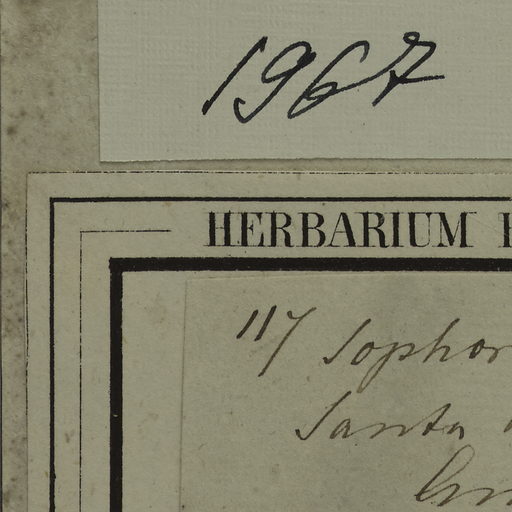 1967
HERBARIUM
117 Sophor
Santa